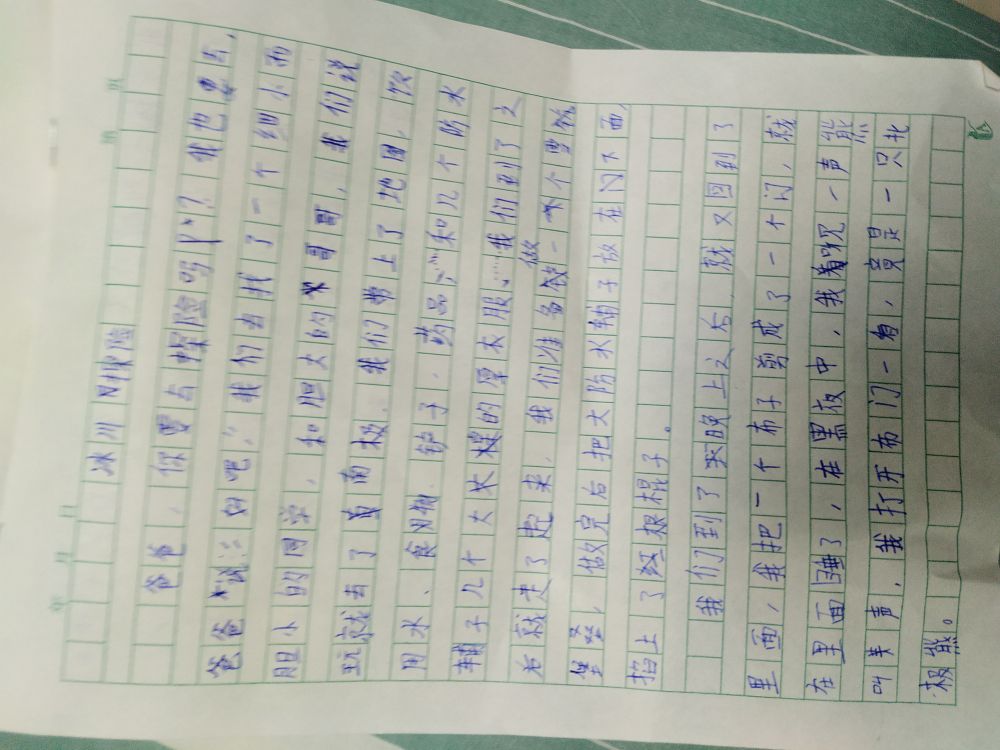 冰川冒险
爸爸，你要去探险吗？我也要去，
爸爸说："好吧，"我们去找了一个细小而
胆小的同学，和胆大的哥哥，我们说
玩就去了南极。我们带上了地图，饮
用水、食物、铲子、药品，和几个防水
辅子几个大大的厚衣服……我们到了之
后就走了起来，我们准备做一个雪
堡垒，做完后把大防水辅子放在门下面，
挡上了红棍子。
我们到了天晚上之后，就又回到了
里面，我把一个布子剪成了一个门，就
在里面睡了，在黑夜中，我听见一声熊
叫声，我打开布门一看，竟是一只北
极熊。